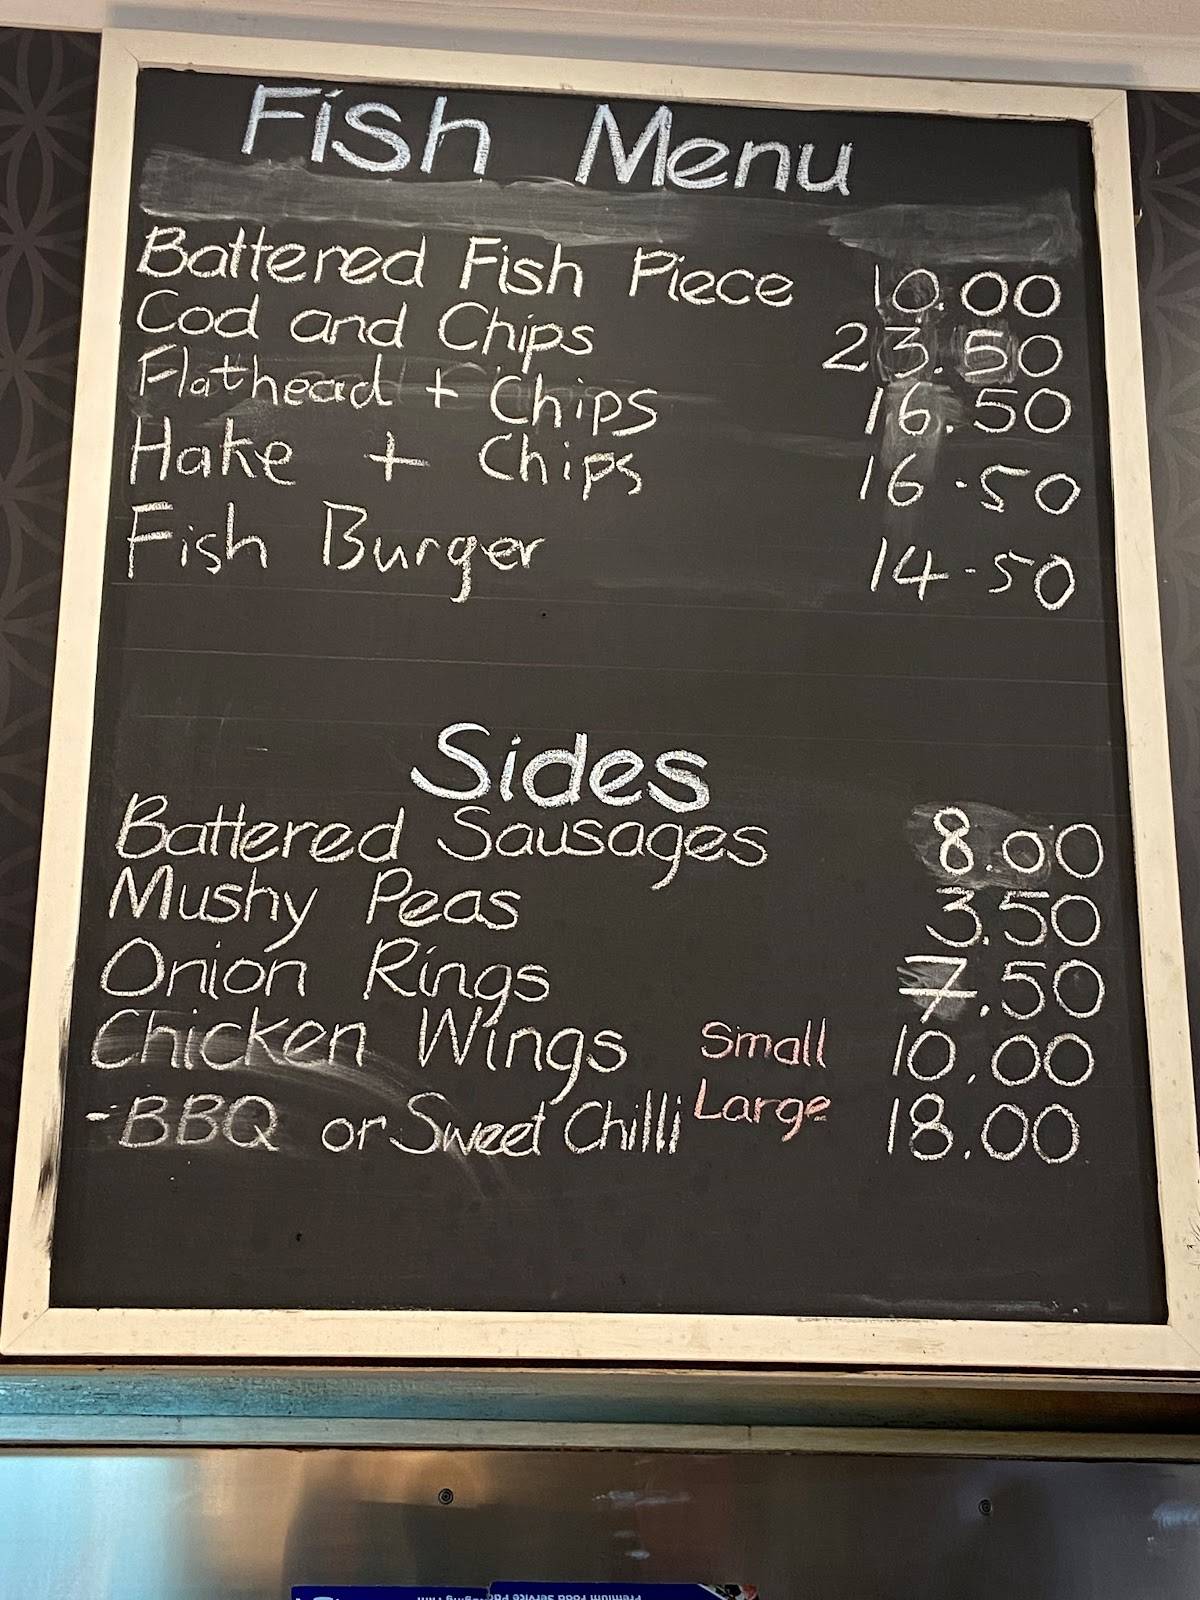 Fish Menu
Battered Fish Piece 10.00
Cod and Chips 23.50
Flathead + Chips 16.50
Hake + Chips 16.50
Fish Burger 14.50
Sides
Battered Sausages 8.00
Mushy Peas 3.50
Onion Rings 7.50
Chicken Wings Small 10.00
-BBQ or Sweet Chilli Large 18.00
Premium Food Service